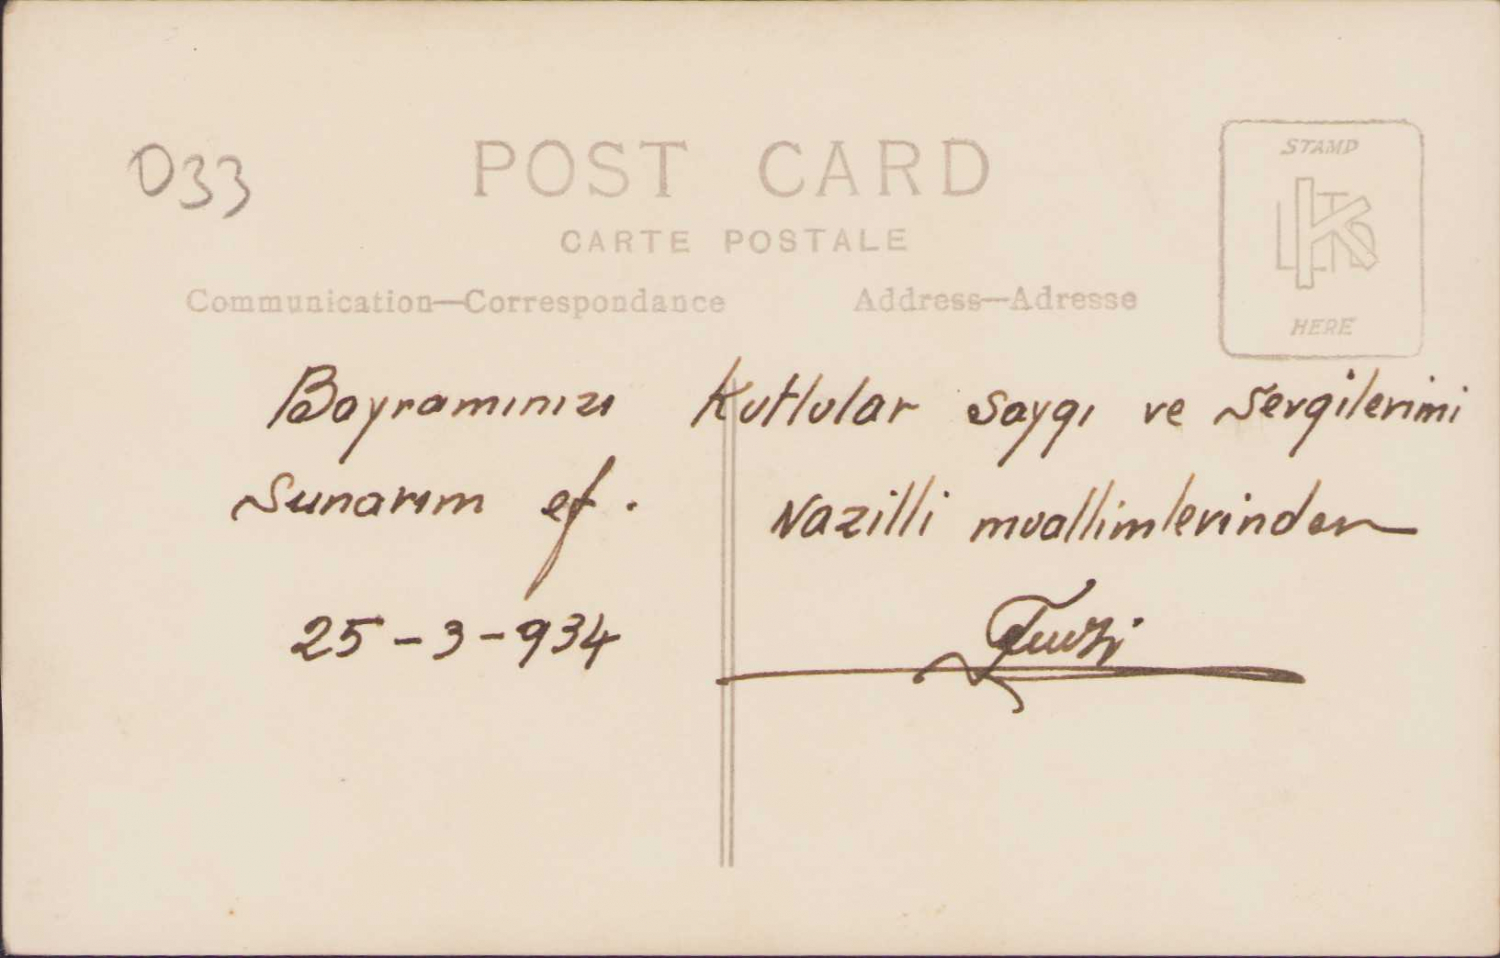 033
POST CARD
CARTE POSTALE
Communication—Correspondance
Address—Adresse
STAMP
HERE
Bayramınızı kutlular saygı ve sevgilerimi
sunarım ef.
Nazilli muallimlerinden
25-3-934